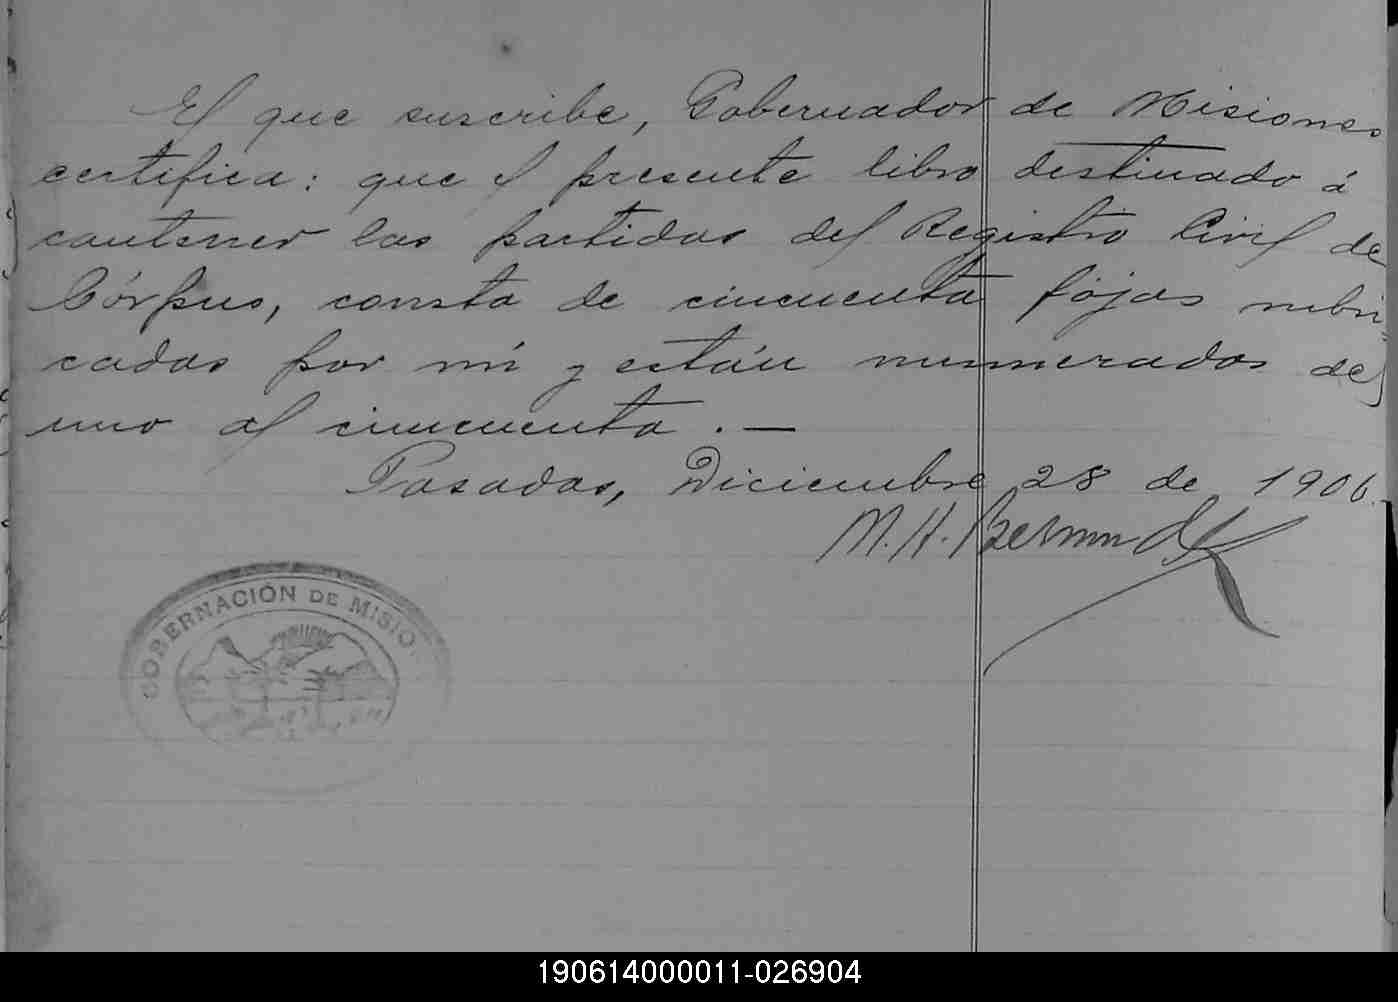 El que suscribe, Gobernador de Misiones
certifica: que el presente libro destinado á
contener las partidas del Registro Civil de
Córpus, consta de cincuenta fójas rubri
cadas por mí y están numerados de
uno al cincuenta . —
Posadas, Diciembre 28 de 1906.
M. H. Bermudez
GOBERNACIÓN DE MISIO
190614000011-026904